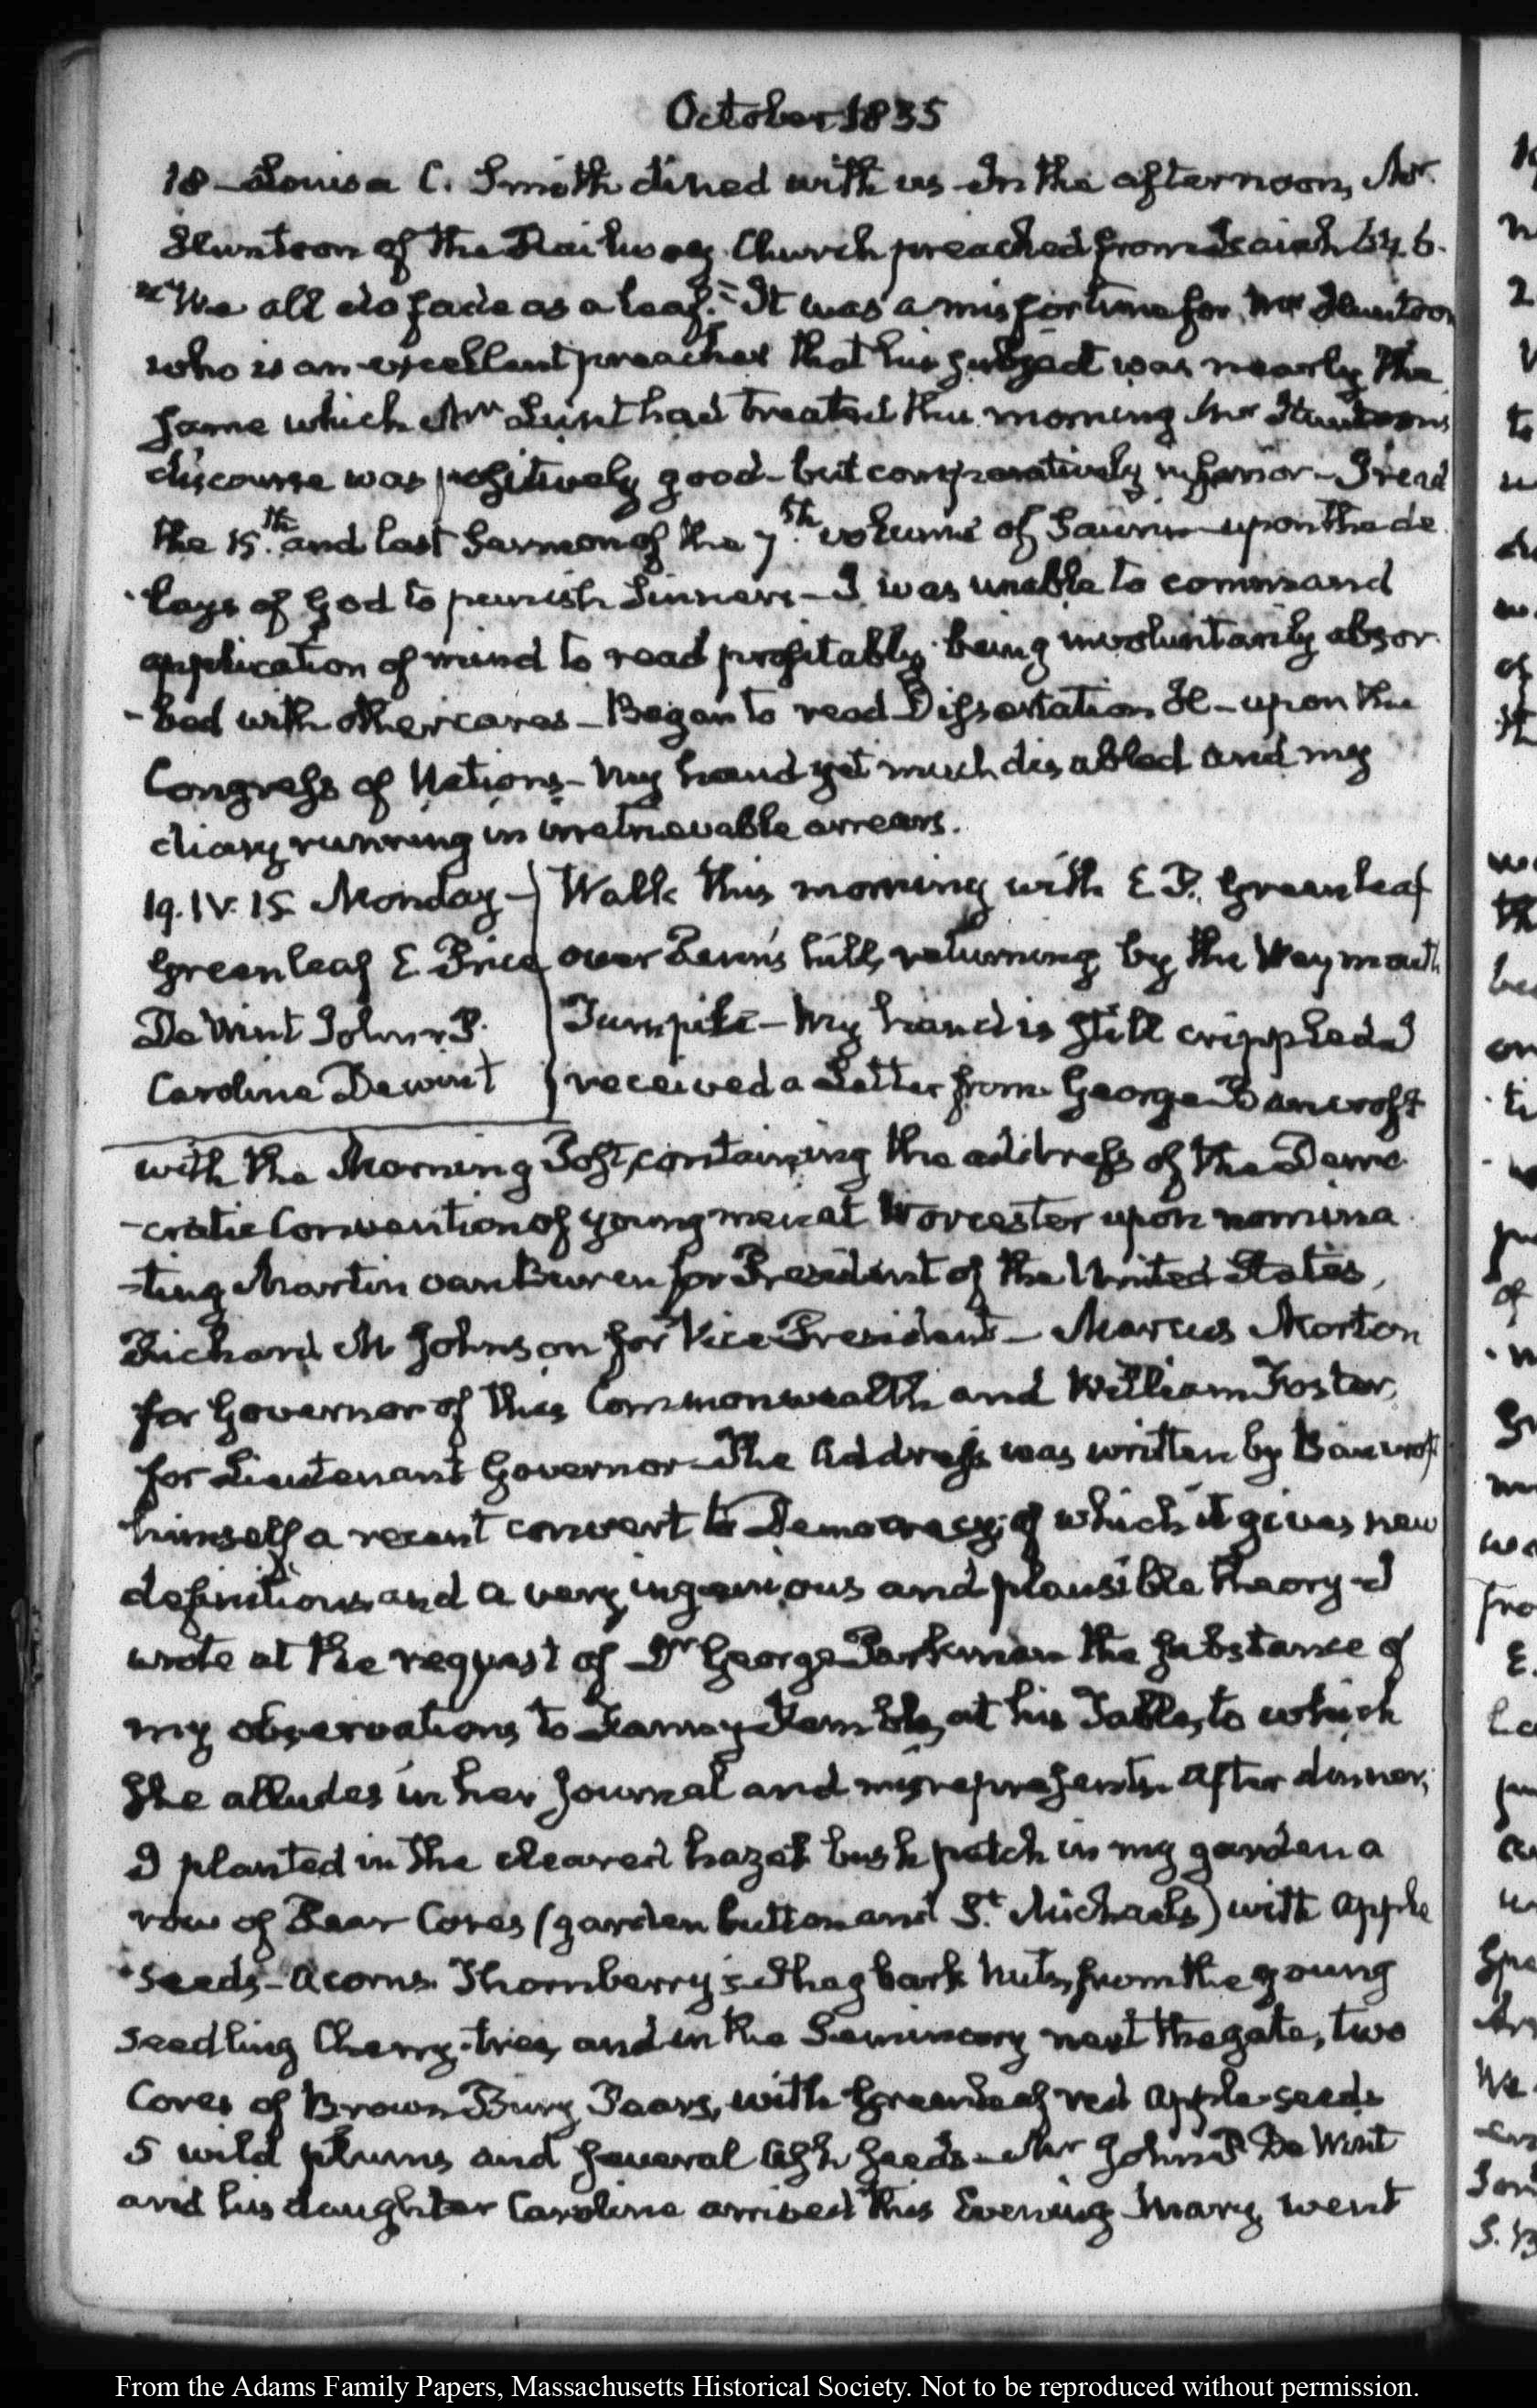 October 1835
18 Louisa C. Smith dined with us In the afternoon, Mr.
Huntoon of the Railway Church preached from Isaiah 64. 6.
"We all do fade as a leaf." It was a misfortune for Mr Huntoon
who is an excellent preacher that his subject was nearly the
same which Mr Lunt had treated this morning Mr Huntoons
discourse was positively good - but comparatively inferior - I read
the 15.th and last Sermon of the 7.th volume of Saurin upon the de
lays of God to punish Sinners - I was unable to command
application of mind to read profitably being involuntarily absor
-bed with other cares - Began to read Dissertation upon the
Congress of Nations - My hand yet much disabled and my
diary running in irretrievable arrears.
19. IV. 15 Monday - Walk this morning with E P. Greenleaf
Greenleaf E Price over Penn's hill, returning by the Weymouth
De Wint John P. Turnpike - My hand is still crippled I
Caroline Dewint received a Letter from George Bancroft
with the Morning Post, containing the address of the Demo
-cratic Convention of young men at Worcester upon nomina
-ting Martin van Buren for President of the United States,
Richard M Johnson for Vice President - Marcus Morton
for Governor of this Commonwealth and William Foster
for Lieutenant Governor The Address was written by Bancroft
himself a recent convert to Democracy; of which it gives new
definitions and a very ingenious and plausible theory - I
wrote at the request of Dr George Parkman the substance of
my observations to Fanny Kemble, at his Table, to which
she alludes in her Journal and misrepresents. After dinner,
I planted in the cleared hazel bush patch in my garden a
row of Pear Cores (garden button and St. Michaels) with apple
seeds - Acorns Thornberry's Shagbark Nuts, from the young
seedling Cherry-tree, and in the Seminary next the gate, two
Cores of Brown Bury Pears, with Greenleaf red apple-seeds
5 wild plums and several Ash seeds - Mr John P De Wint
and his daughter Caroline arrived this Evening Mary went
From the Adams Family Papers, Massachusetts Historical Society. Not to be reproduced without permission.